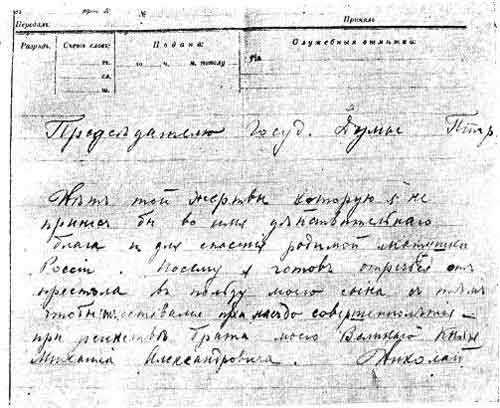 Передалъ:
№
Принялъ:
Разрядъ.
Счетъ словъ:
Подана:
Служебныя отмѣтки:
го ч. м. пополу
№
Предсѣдателю Госуд. Думы Птгр.
Нѣтъ той жертвы которую я не
принесъ бы во имя дѣйствительнаго
блага и для спасенія родимой матушки
Россіи. Посему я готовъ отречься отъ
престола въ пользу моего сына съ тѣмъ
чтобы оставался при насъ до совершеннолѣтія
при регенствѣ брата моего Великаго Князя
Михаила Александровича. Николай